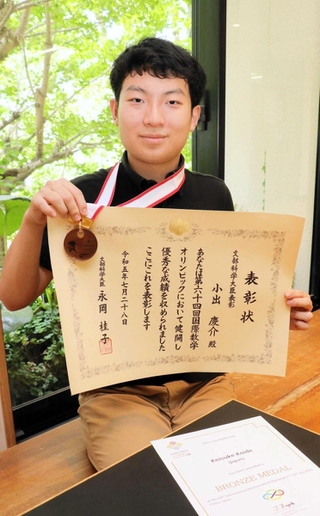 表彰状
文部科学大臣表彰
小出 慶介 殿
あなたは第六十四回国際数学
オリンピックにおいて健闘し
優秀な成績を収められました
ここにこれを表彰します
令和五年七月二十八日
文部科学大臣 永岡 桂子
Keisuke Koide
BRONZE MEDAL